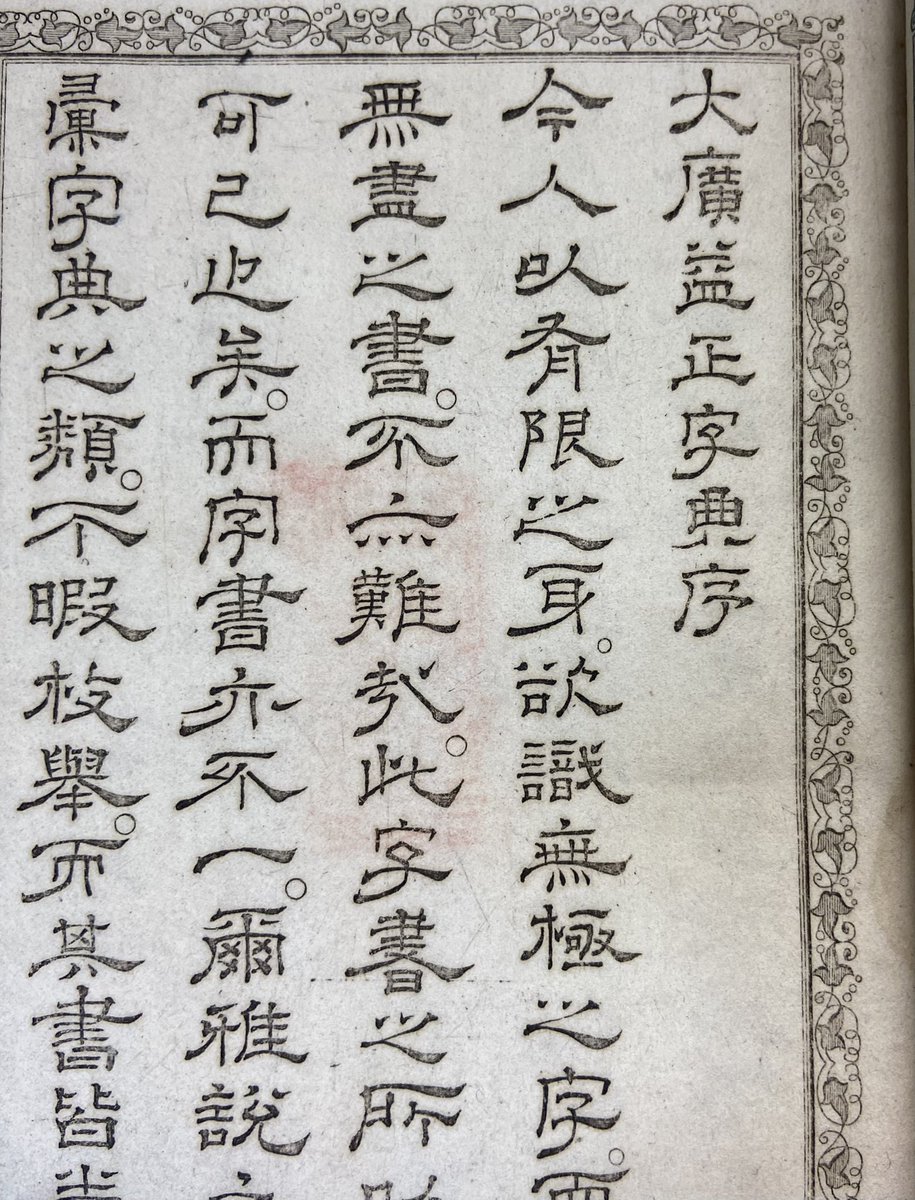 大廣益正字典序
今人以有限之身。欲識無極之字。而
無盡之書。不亦難哉。此字書之所以
可已也矣。而字書亦不一。爾雅說文
彙字典之類。不暇枚舉。而其書皆